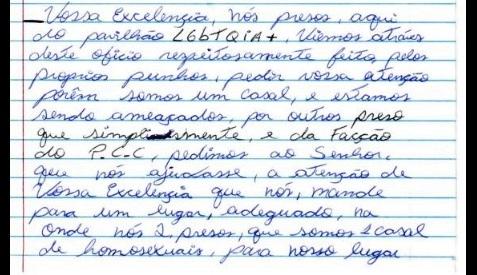 Vossa Excelençia, nós presos, aqui
do pavilhão LGbTQiA+, Viemos atráves
deste oficio respeitosamente feito, pelos
proprios punhos, pedir vossa atenção
porém somos um Casal, e estamos
sendo ameaçados, por outros preso
que simplismente, e da Facção
do P.C.C, pedimos ao Senhor,
que nós ajudasse, a atenção de
Vossa Excelençia que nós, mande
para um lugar, adeguado, na
onde nós 2 presos, que somos 1 casal
de homosexuais, para nosso lugar